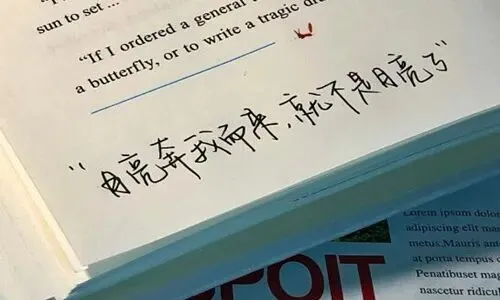 sun to set ...
“If I ordered a general
a butterfly, or to write a tragic
“月亮奔我而来，就不是月亮了”
Lorem ipsum dolo
adipiscing elit
metus. Mauris
at porta tempus
Penatibuset
nascetur ridicul
POIT